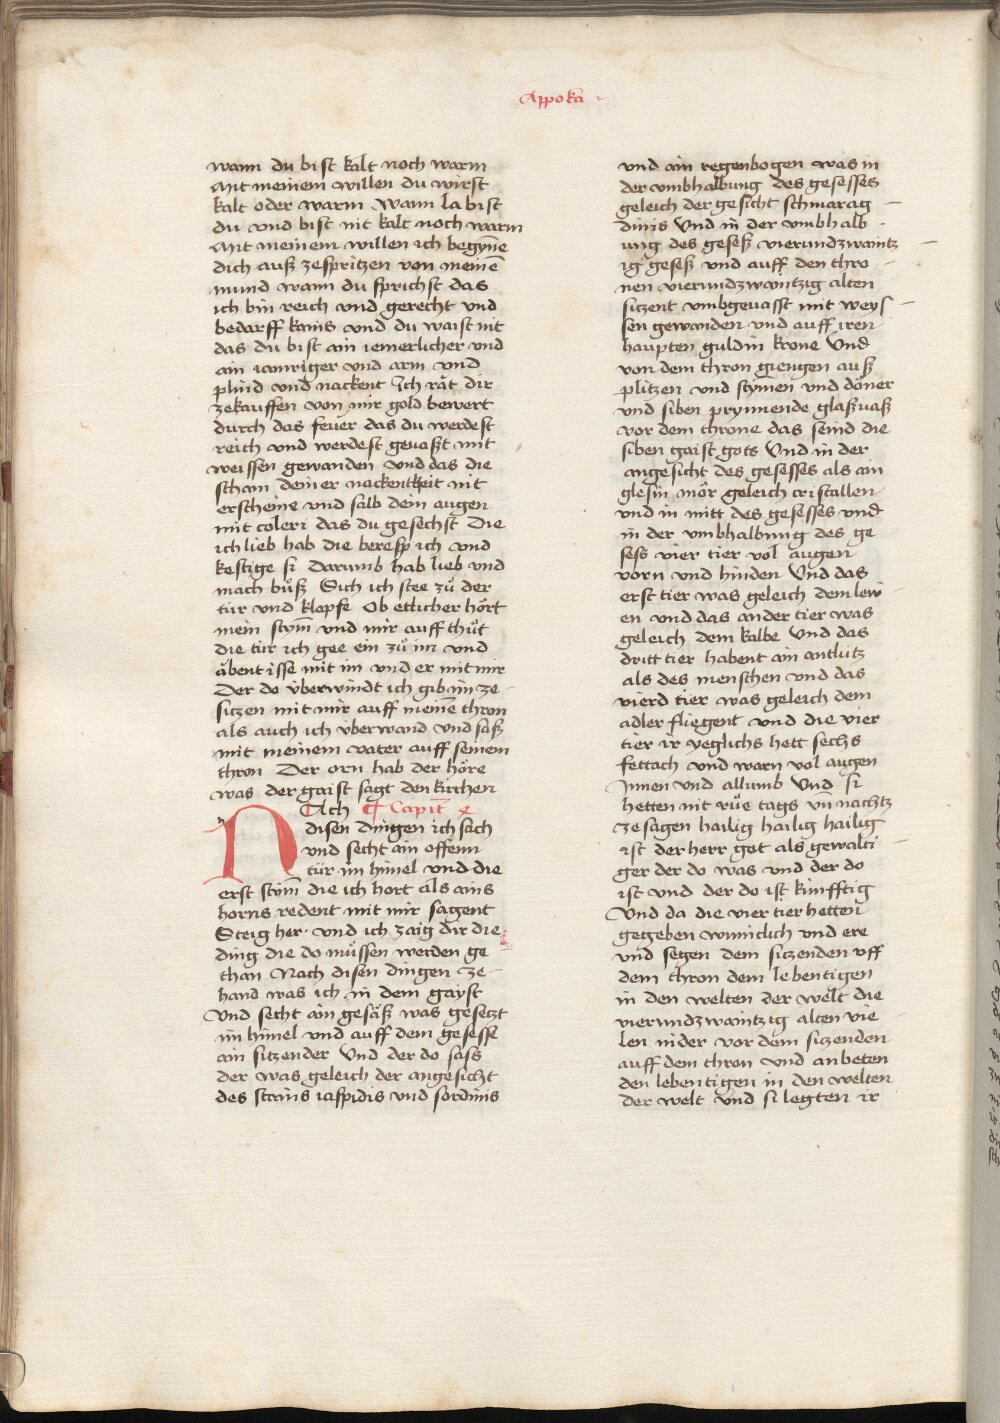 Appoka
wann du bist kalt noch warm
Mit meinem willen du wirst
kalt oder warm Wann la bist
du vnd bist nit kalt noch warm
Mit meinem willen ich begyñe
dich auß zespritzen von meinē
mund wann du sprichst das
ich bin reich vnd gerecht vnd
bedarff kains vnd du waist nit
das du bist ain iemerlicher vnd
ain iamriger vnd arm vnd
plind vnd nackent Ich rät dir
zekauffen von mir gold bewert
durch das feuer das du werdest
reich vnd werdest geuaßt mit
weissen gewanden vnd das die
scham deiner nackentkeit nit
erscheine vnd salb dein augen
mit coleri das du gesechst Die
ich lieb hab die beresp ich vnd
kestige si Darumb hab lieb vnd
mach bůß Sich ich stee zů der
tür vnd klopfe Ob etlicher hört
mein stym̄ vnd mir auff thůt
die tür ich gee ein zů im vnd
äbent isse mit im vnd er mit mir
Der do überwindt ich gib im ze
sitzen mit mir auff meinē thron
als auch ich überwand vnd saß
mit meinem vater auff seinem
thron Der orn hab der höre
was der gaist sagt den kirchen
NAch ¶ Capit̄ 4
disen dingen ich sach
vnd secht ain offenn
tür im himel vnd die
erst stym̄ die ich hort als ains
horns redent mit mir sagent
Steig her vnd ich zaig dir die
ding die do müssen werden ge
than Nach disen dingen ze
hand was ich in dem gayst
Vnd secht ain gesäß was gesetzt
im himel vnd auff dem gesesse
ain sitzender Vnd der do sass
der was geleich der angesicht
des stains iaspidis vnd sordinis
vnd ain regenbogen was in
der vmbhalbung des gesesses
geleich der gesicht schmarag
dinis Vnd in der vmbhalb
ung des geseß vierundzwaintz
ig geseß vnd auff den thro
nen vierundzwaintzig alten
sitzent vmbgeuasst mit weys
sen gewanden vnd auff iren
haupten guldin krone Vnd
von dem thron giengen auß
plitzen vnd stymen vnd döner
vnd siben prynnende glaßuaß
vor dem throne das seind die
siben gaist gots Vnd in der
angesicht des gesesses als ain
glesin mör geleich cristallen
vnd in mitt des gesesses vnd
in der vmbhalbung des ge
sess vier tier vol augen
vorn vnd hinden Vnd das
erst tier was geleich dem lew
en vnd das ander tier was
geleich dem kalbe Vnd das
dritt tier habent ain antlütz
als des menschen vnd das
vierd tier was geleich dem
adler fliegent vnd die vier
tier ir yeglichs hett sechs
fettach vnd warn vol augen
Jnnen vnd allumb Vnd si
hetten nit rüe tags vn̄ nachtz
ze sagen hailig hailig hailig
ist der herr got als gewalti
ger der do was vnd der do
ist vnd der do ist kunfftig
Vnd da die vier tier hetten
gegeben wunniclich vnd ere
vnd segen dem sitzenden vff
dem thron dem lebentigen
in den welten der welt die
vierundzwaintzig alten vie
len nider vor dem sitzenden
auff dem thron vnd anbeten
den lebentigen in den welten
der welt vnd si legten ir